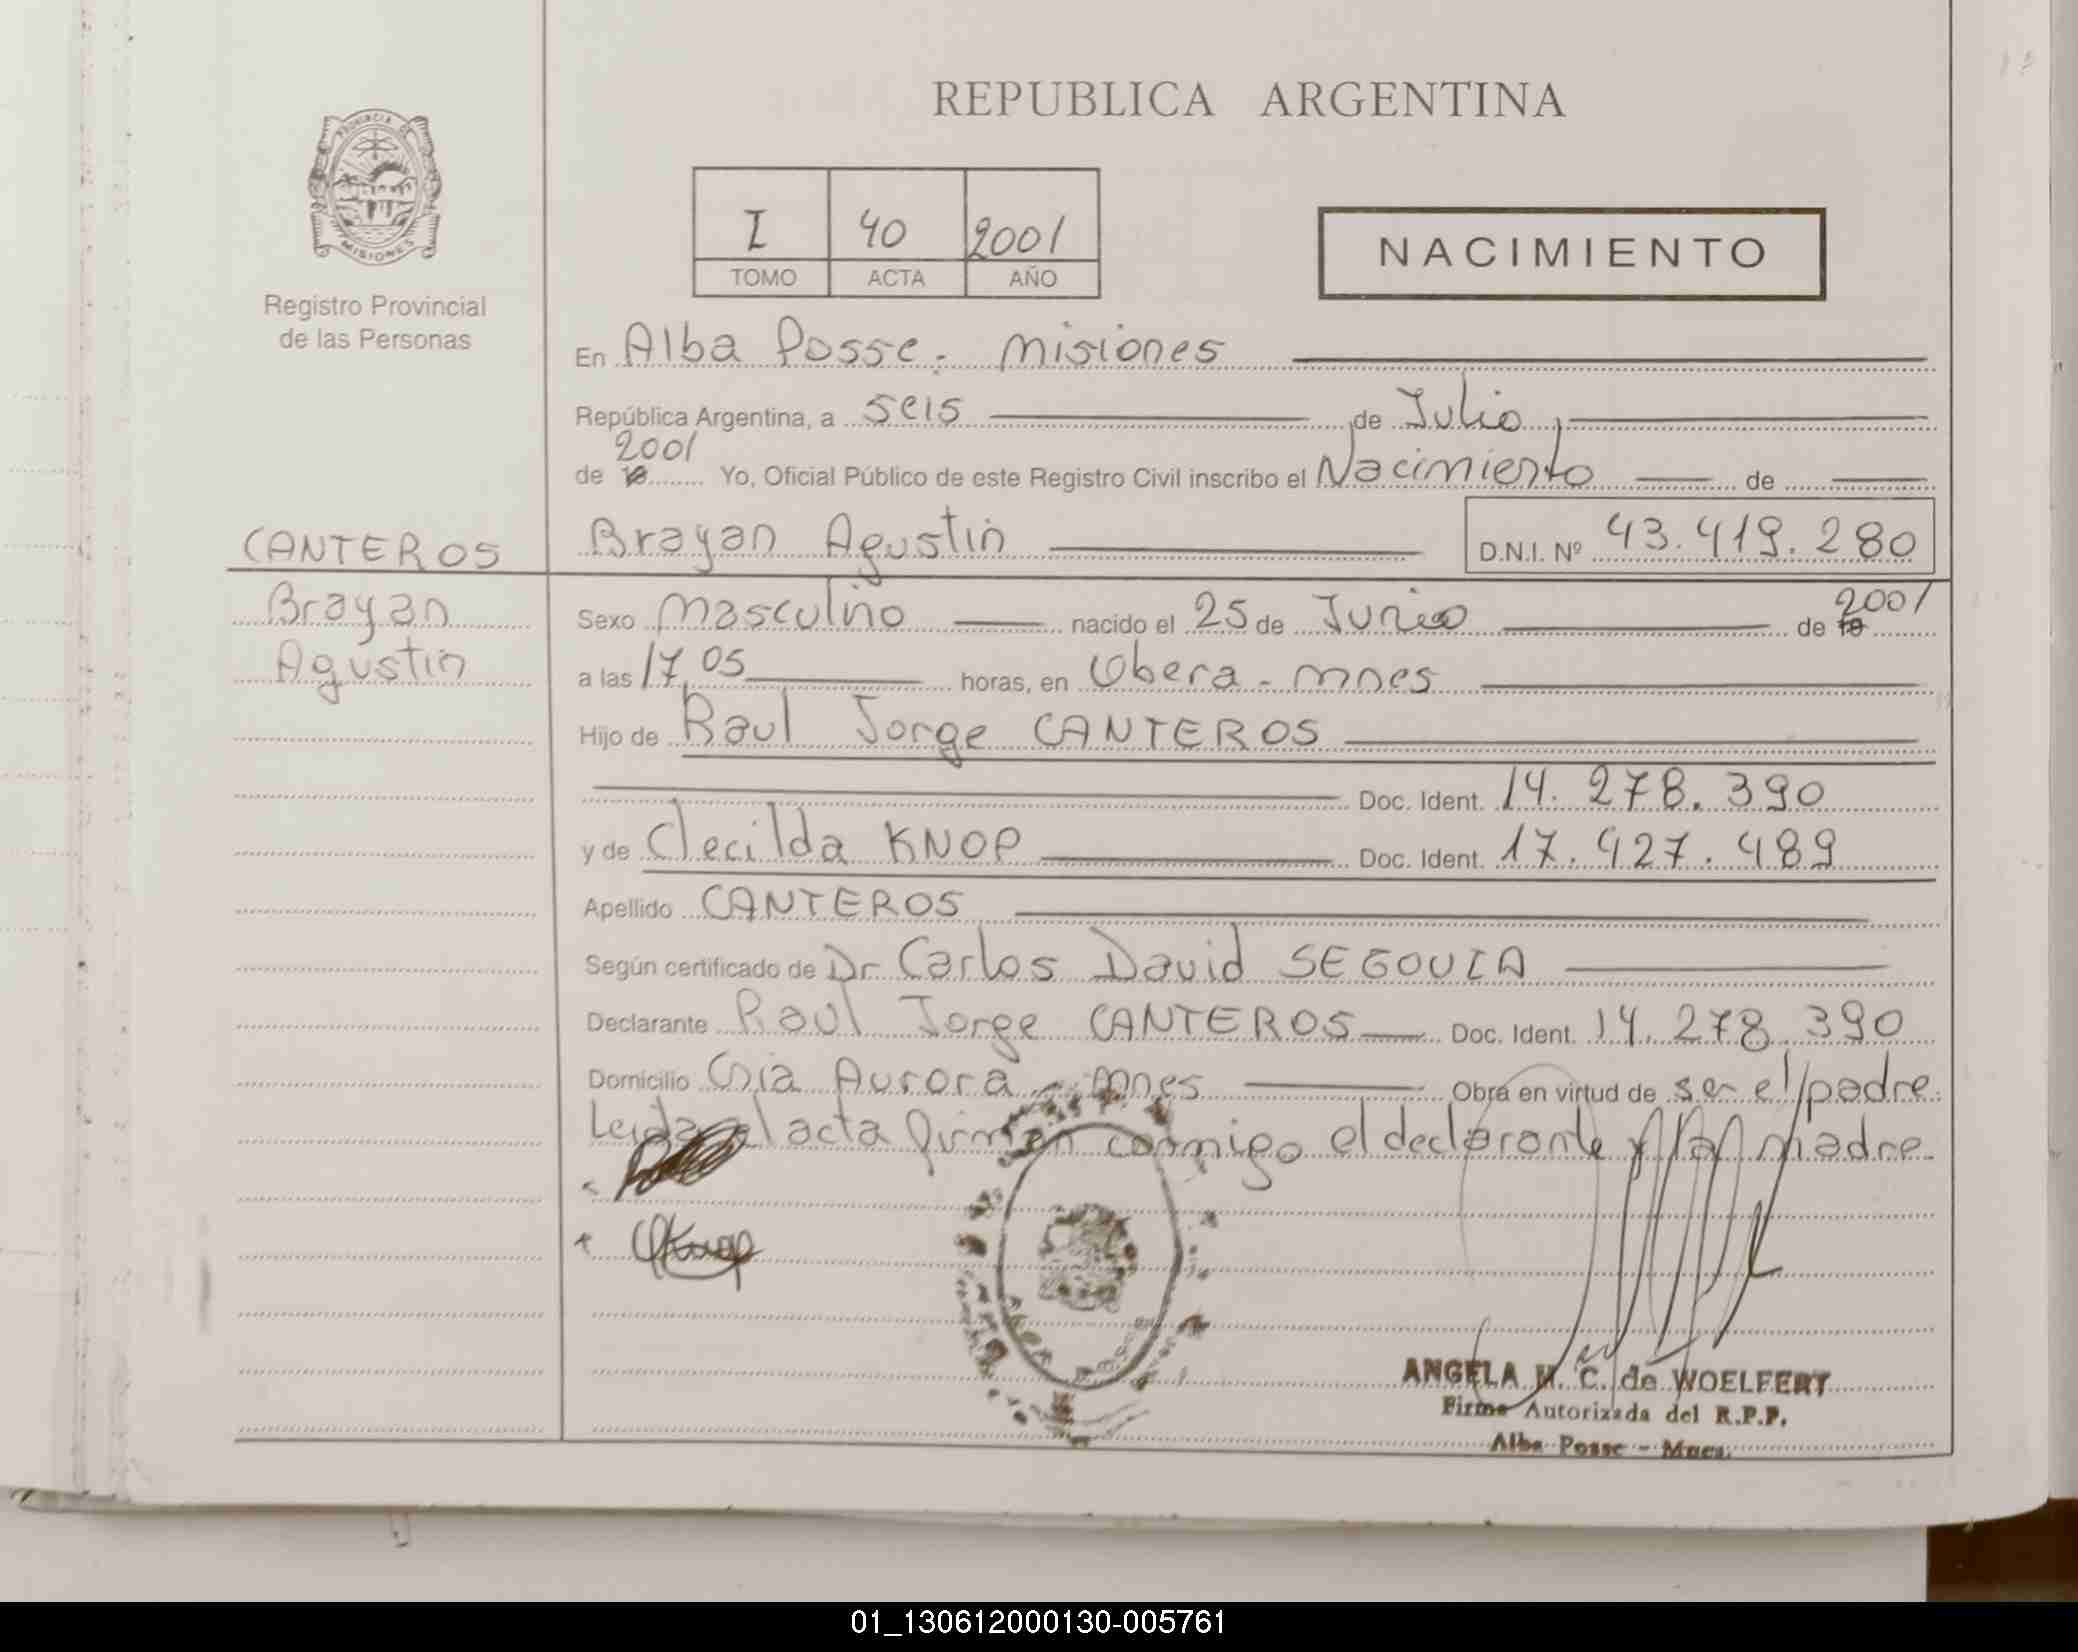 REPUBLICA ARGENTINA
PROVINCIA DE
MISIONES
Registro Provincial
de las Personas
I 40 2001
TOMO ACTA AÑO
NACIMIENTO
En Alba Posse. Misiones
República Argentina, a seis de Julio,
de 2001 Yo, Oficial Público de este Registro Civil inscribo el Nacimiento de
CANTEROS Brayan Agustin D.N.I. Nº 43.419.280
Brayan
Agustin
Sexo Masculino nacido el 25 de Junio de 2001
a las 17,05 horas, en Obera - Mnes
Hijo de Raul Jorge CANTEROS
Doc. Ident. 14.278.390
y de Clecilda KNOP Doc. Ident. 17.427.489
Apellido CANTEROS
Según certificado de Dr Carlos David SEGOVIA
Declarante Raul Jorge CANTEROS Doc. Ident. 14.278.390
Domicilio Cnia Aurora - Mnes Obra en virtud de ser el padre.
Leida el acta firman conmigo el declarante y la madre.
ANGELA M. C. de WOELFERT
Firma Autorizada del R.P.P.
Alba Posse - Mnes.
01_130612000130-005761